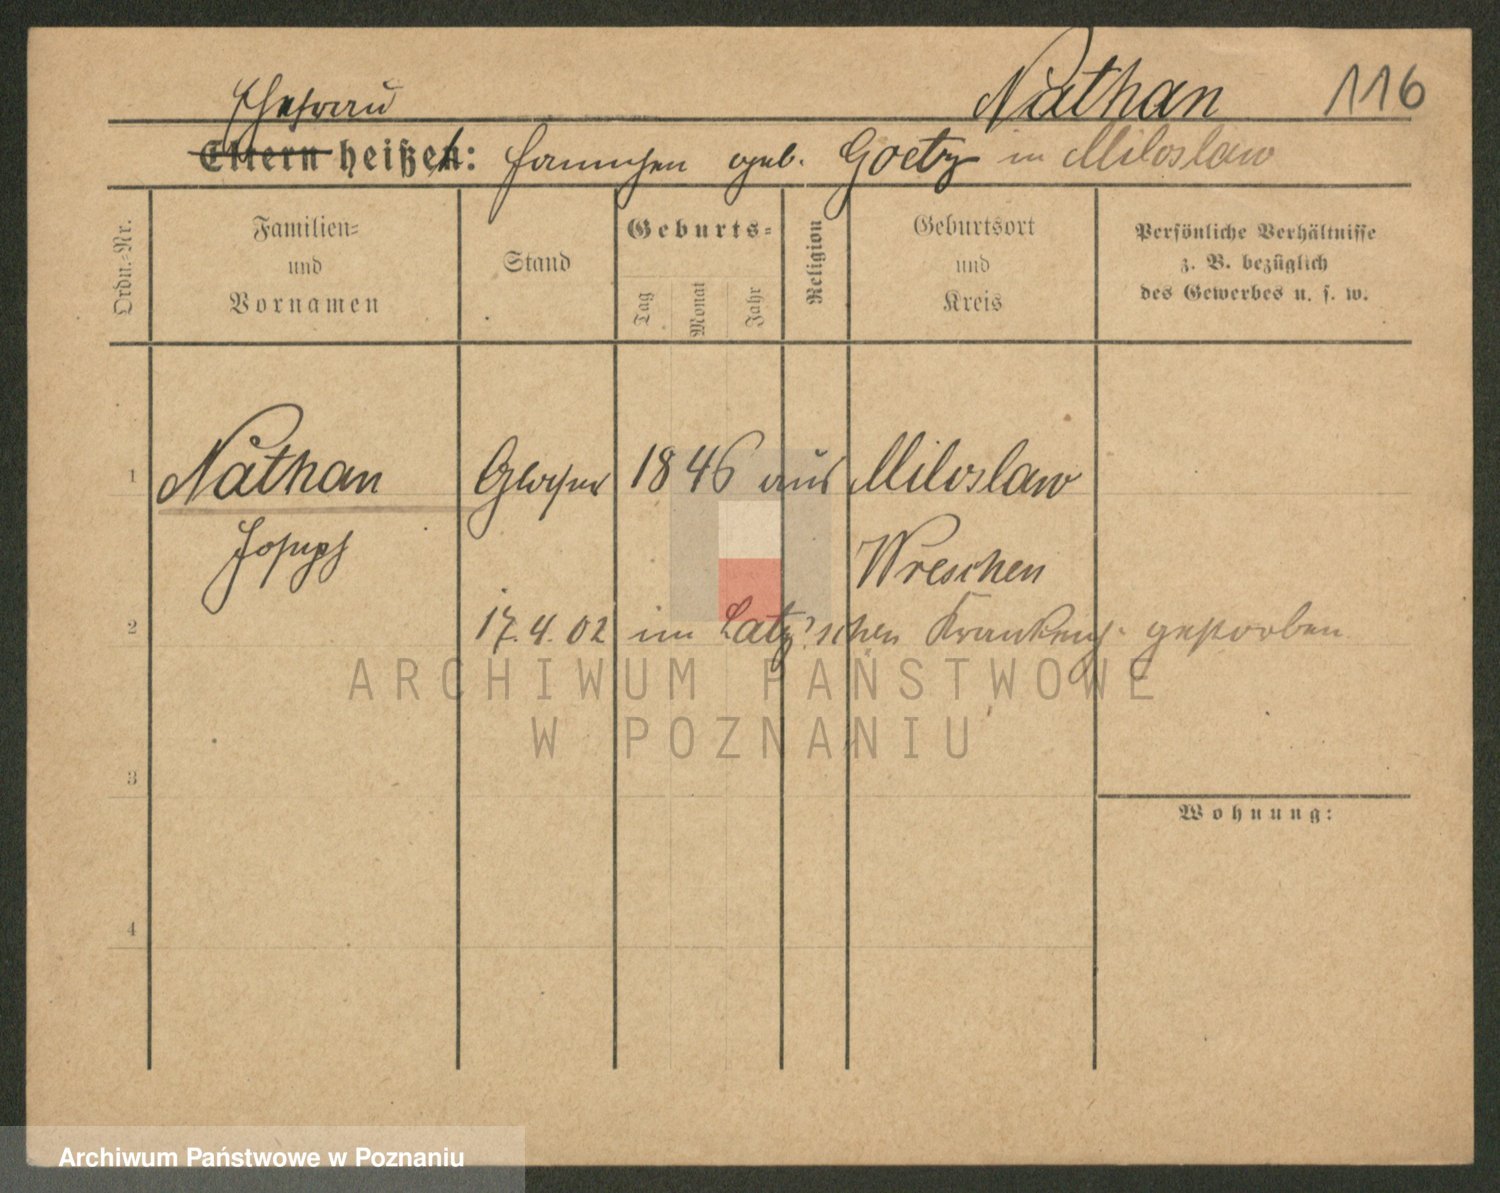 Nathan 116
Ehefrau
Eltern heißen: Hannchen geb. Goetz in Miloslaw
Ordn.-Nr.
Familien- und Vornamen
Stand
Geburts-
Tag
Monat
Jahr
Religion
Geburtsort und Kreis
Persönliche Verhältnisse
z. B. bezüglich
des Gewerbes u. s. w.
1 Nathan Glaser 1846 aus Miloslaw
Joseph Wreschen
2 17.4.02 im Latz'schen Krankenh. gestorben
3
Wohnung:
4
ARCHIWUM PAŃSTWOWE
W POZNANIU
Archiwum Państwowe w Poznaniu